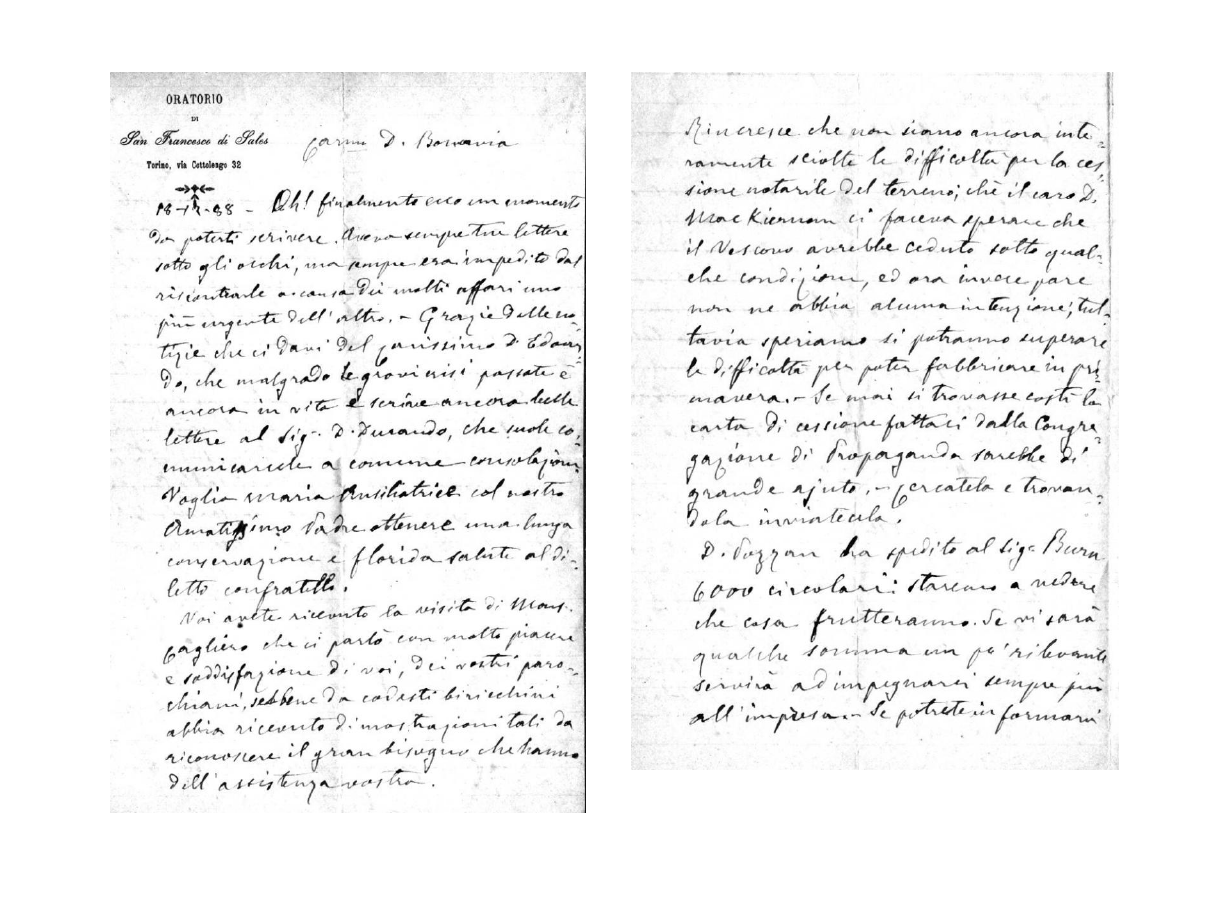 ORATORIO
DI
San Francesco di Sales
Torino, via Cottolengo 32
Car.mo D. Bonavia
18-12-88 - Oh! finalmente ecco un momento
da poterti scrivere. Aveva sempre tue lettere
sotto gli occhi, ma sempre era impedito dal
riscontrarle a causa dei molti affari uno
più urgente dell'altro. - Grazie delle no-
tizie che ci davi del carissimo D. Edoar-
do, che malgrado le gravi crisi passate è
ancora in vita e scrive ancora belle
lettere al Sig. D. Durando, che suole co-
municarcele a comune consolazione.
Voglia Maria Ausiliatrice col nostro
Amatissimo Padre ottenere una lunga
conservazione e florida salute al di-
letto confratello.
Voi avete ricevuto la visita di Mons.
Cagliero che ci parlò con molto piacere
e soddisfazione di voi, dei vostri paro-
chiani, sebbene da codesti biricchini
abbia ricevuto dimostrazioni tali da
riconoscere il gran bisogno che hanno
dell'assistenza vostra.
Rincresce che non siano ancora inte-
ramente sciolte le difficoltà per la ces-
sione notarile del terreno; chè il caro D.
Mac Kiernan ci faceva sperare che
il Vescovo avrebbe ceduto sotto qual-
che condizione, ed ora invece pare
non ne abbia alcuna intenzione; tut-
tavia speriamo si potranno superare
le difficoltà per poter fabbricare in pri-
mavera. - Se mai si trovasse costì la
carta di cessione fattaci dalla Congre-
gazione di Propaganda sarebbe di
grande ajuto. - Cercatela e trovan-
dola inviatecela.
D. Pozzan ha spedito al Sig. Burn
6000 circolari: staremo a vedere
che cosa frutteranno. Se vi sarà
qualche somma un po' rilevante
servirà ad impegnarci sempre più
all'impresa. - Se potrete informarvi